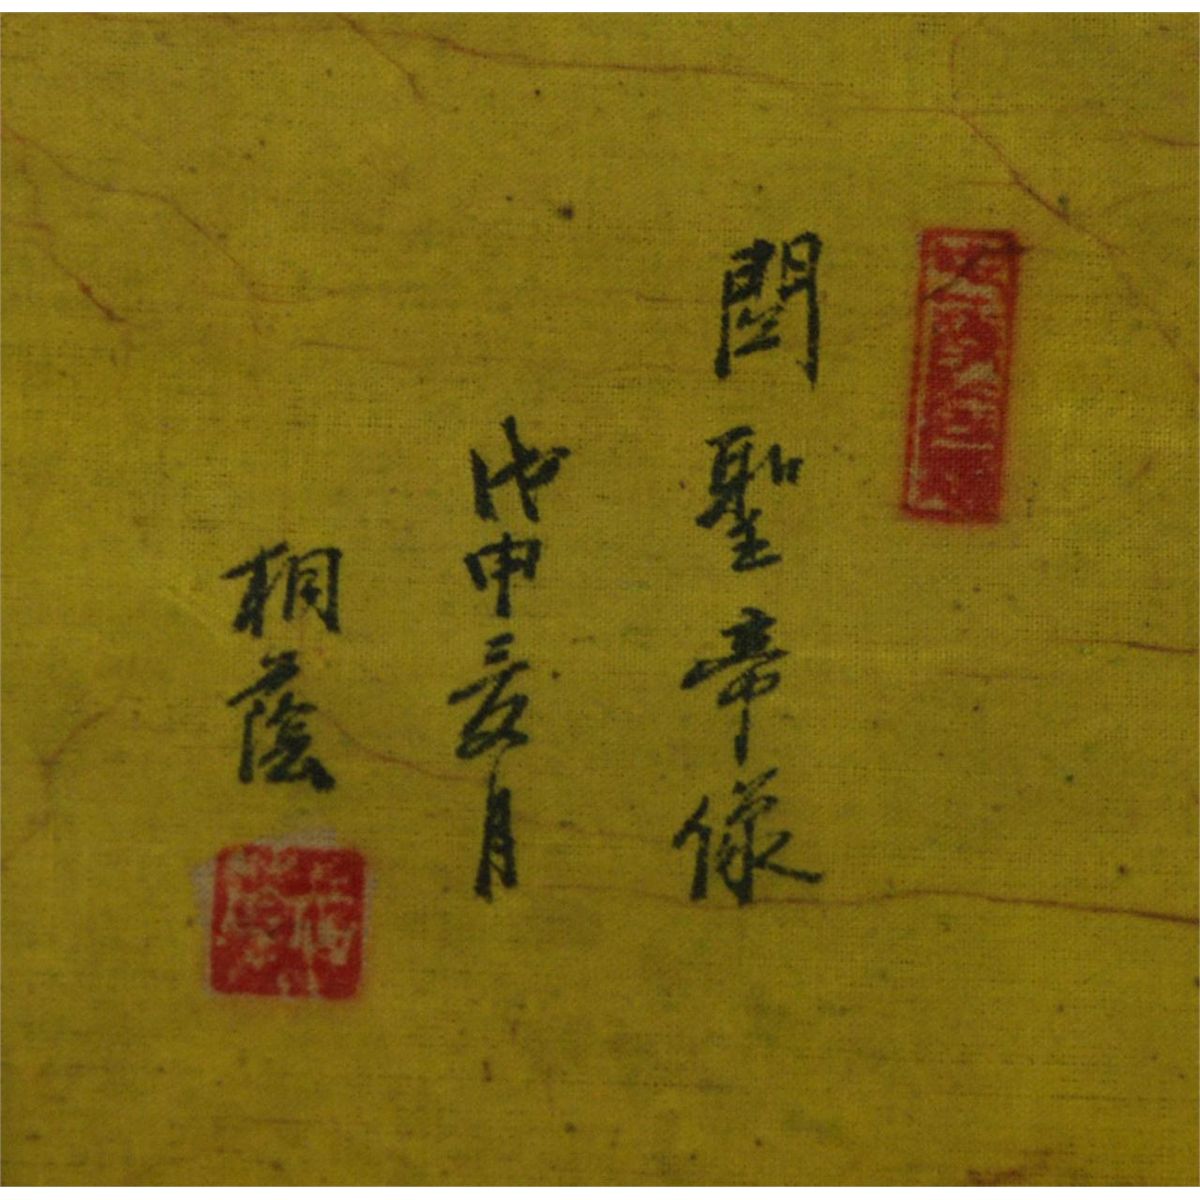 関聖帝像
戊申夏月
桐蔭